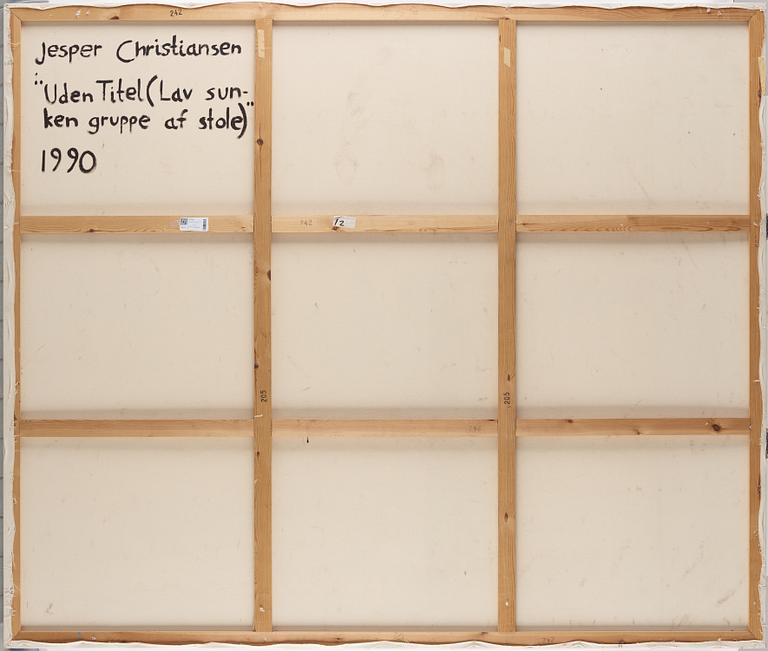 242
Jesper Christiansen
"Uden Titel (Lav sun-
ken gruppe af stole)"
1990
242
T2
205
205
242